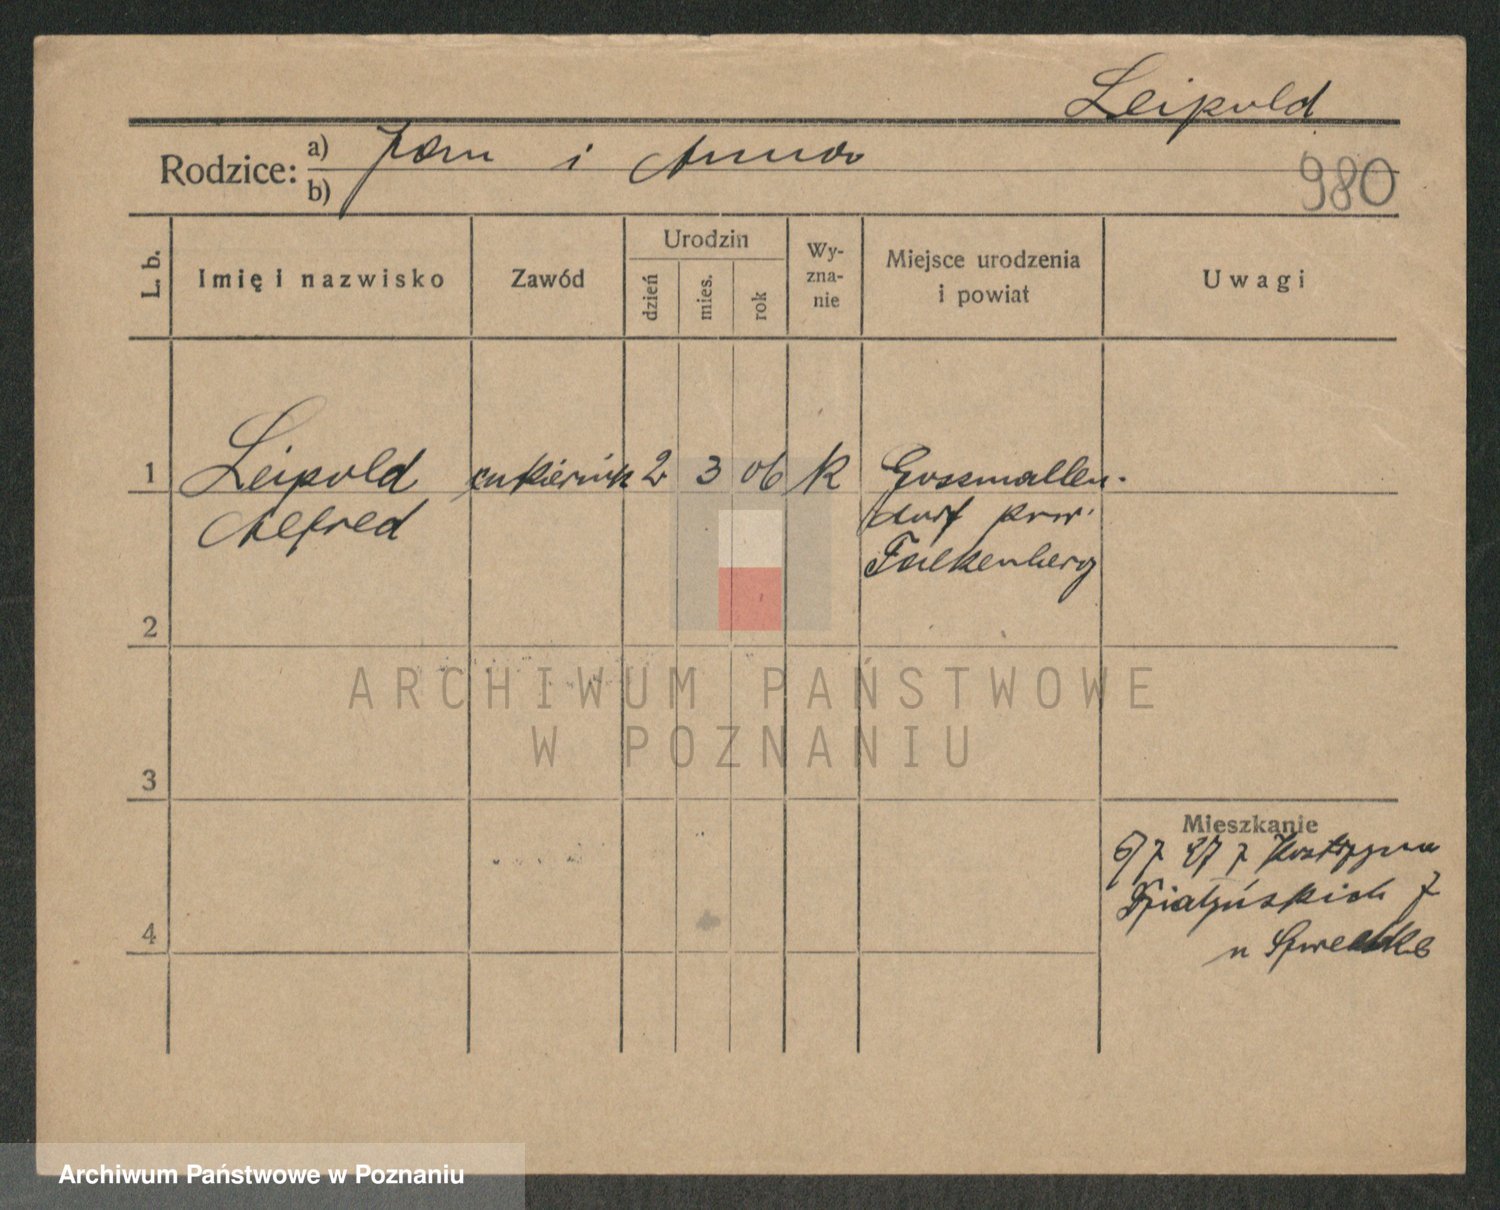 Leipold
Rodzice: a) Jan i Anna
b)
980
L. b.
Imię i nazwisko
Zawód
Urodzin
dzień
mies.
rok
Wy-
zna-
nie
Miejsce urodzenia
i powiat
Uwagi
1 Leipold cukiernik 2 3 06 k Grossmallen-
Alfred dorf pow.
Falkenberg
2
3
4
Mieszkanie
6/7 27 z Kostrzyna
Działyńskich 7
u
ARCHIWUM PAŃSTWOWE
W POZNANIU
Archiwum Państwowe w Poznaniu